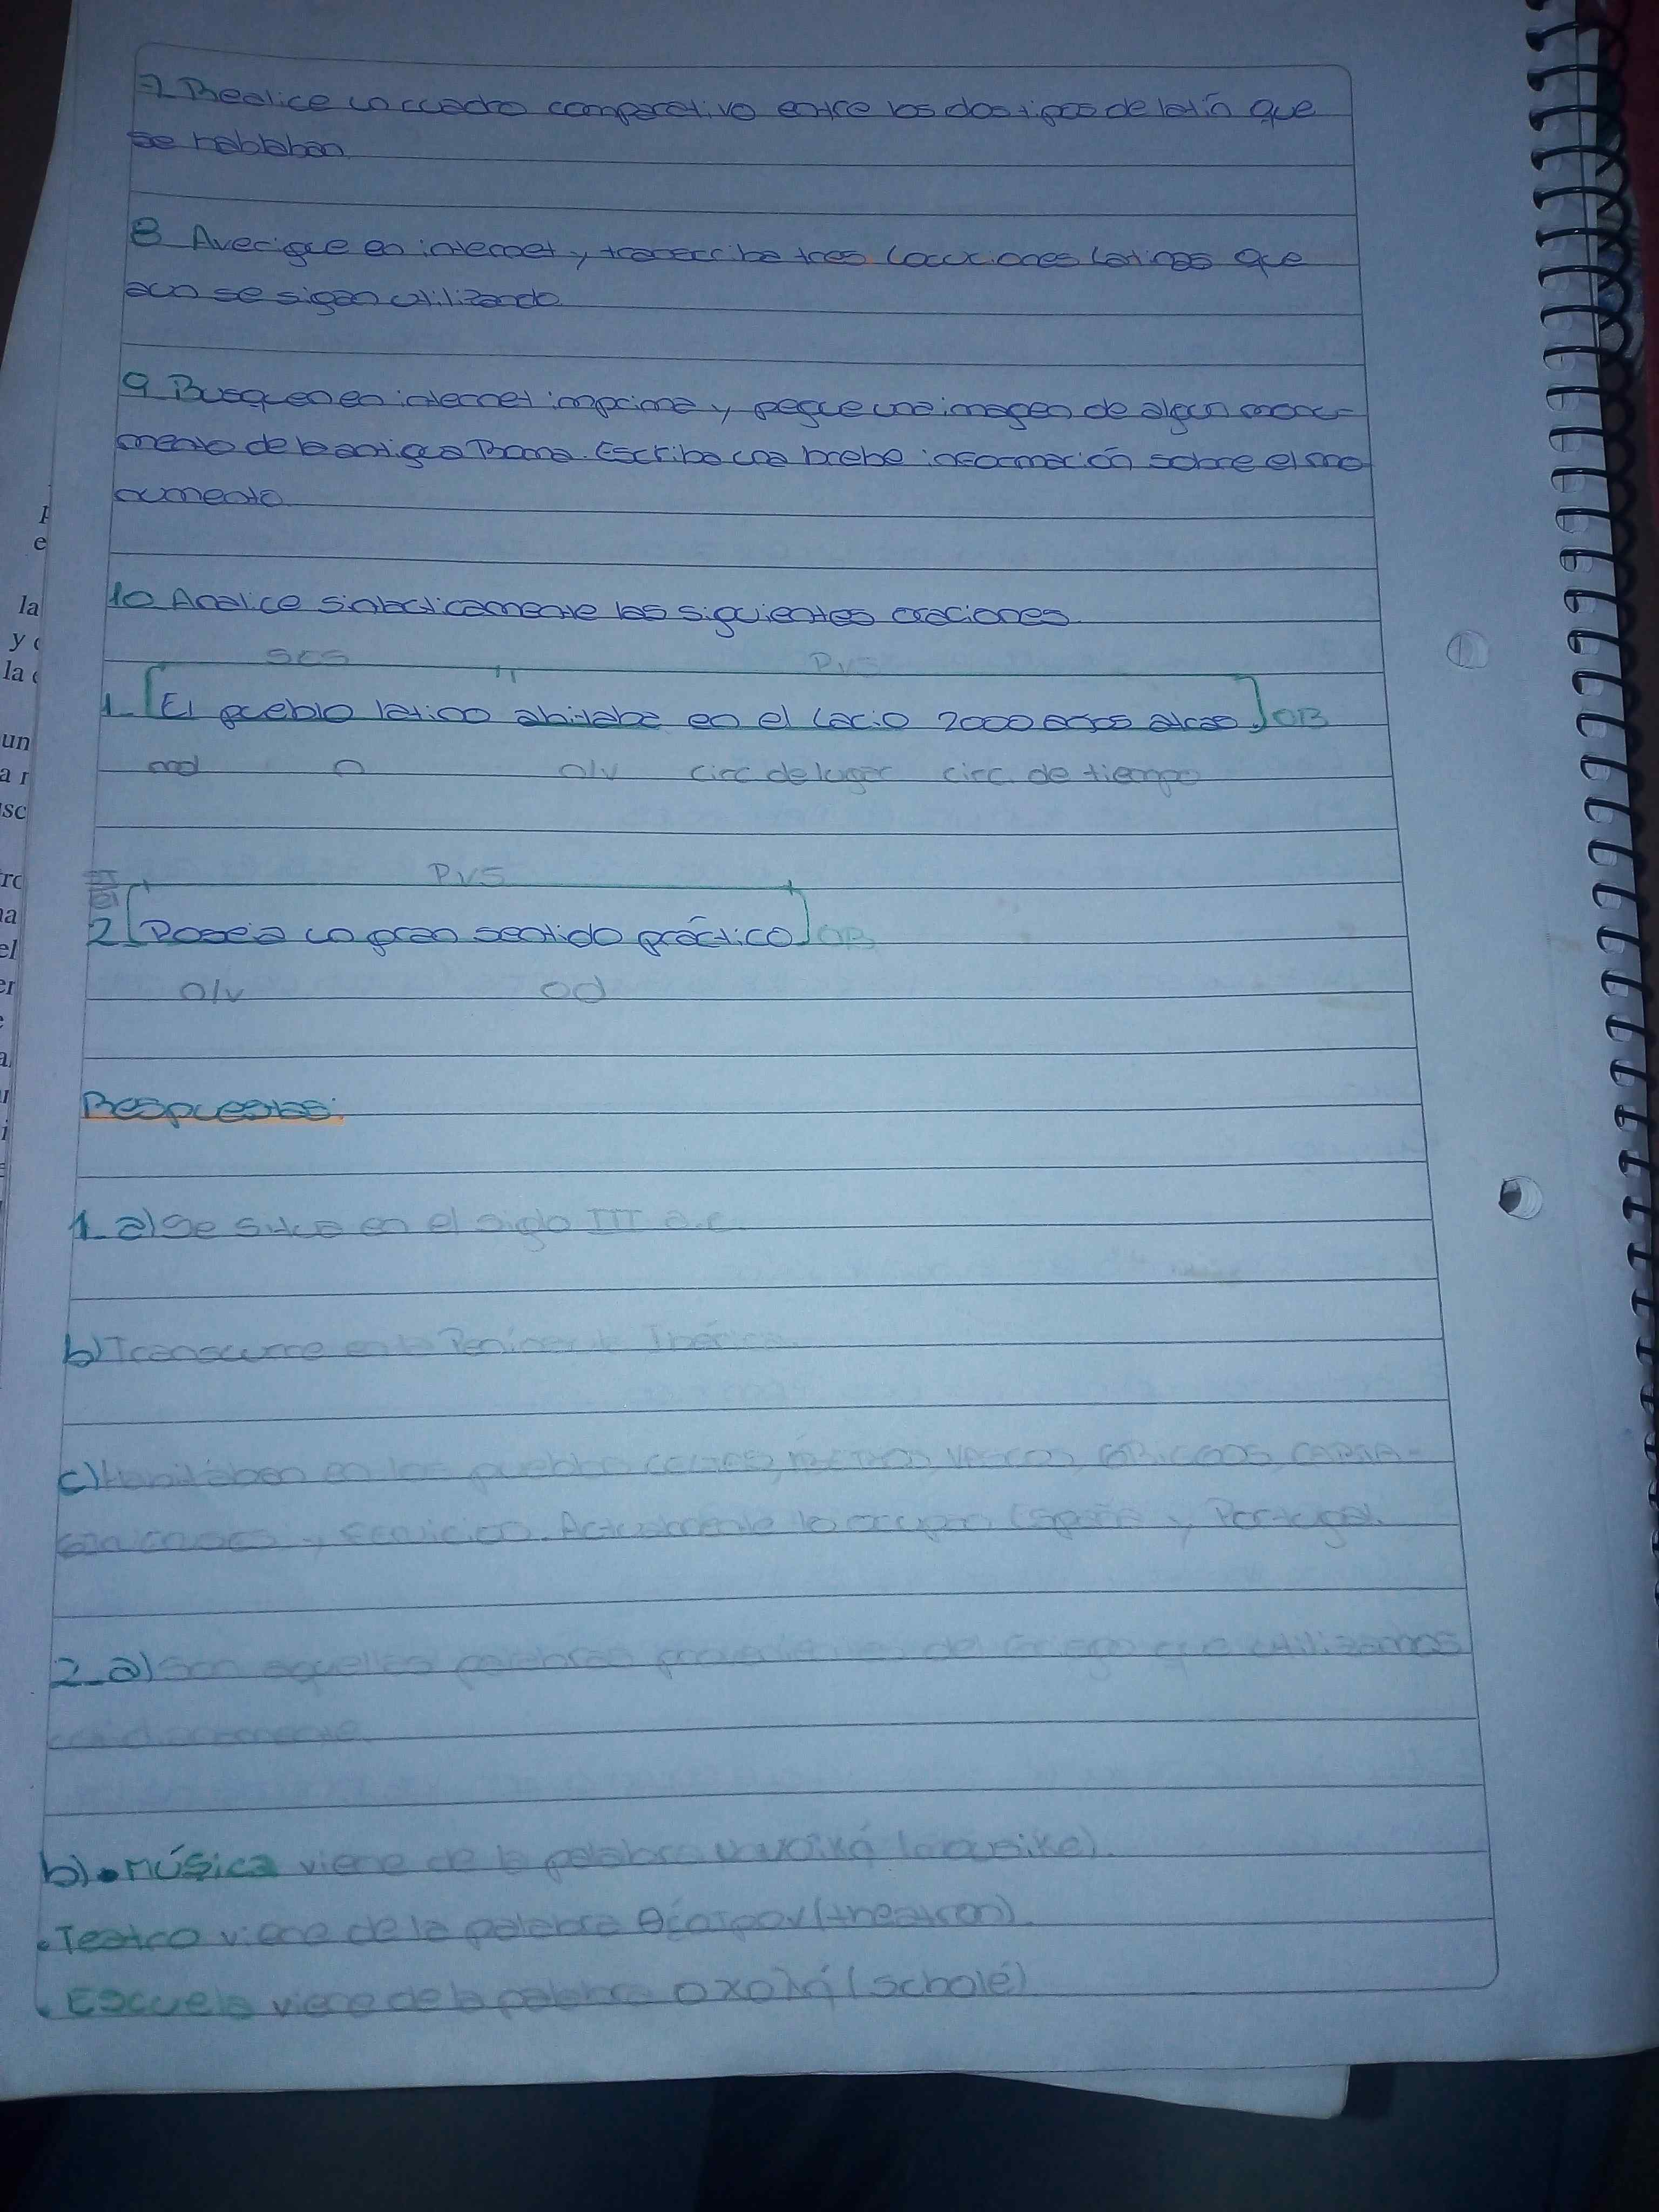 7_Realice un cuadro comparativo entre los dos tipos de latín que
se hablaban.
8_ Averigue en internet y transcriba tres locuciones latinas que
aun se sigan utilizando
9_Busquen en internet imprima y pegue una imagen de algun monu-
mento de la antigua Roma. Escriba una brebe información sobre el mo
numento
10_Analice sintacticamente las siguientes oraciones
SES PVS
1_[El pueblo latino abitaba en el Lacio 2000 años atras.]OB
md n n/v circ de lugar circ. de tiempo
PVS
2_[Poseía un gran sentido práctico]OB
n/v od
Respuestas:
1_a)Se situa en el siglo III a.c.
b)Transcurre en la Península Ibérica.
c)Habitaban en los pueblos celtas, vascos,
y fenicios. Actualmente lo ocupan España y Portugal.
2_a)Son aquellas palabras provenientes del Griego que utilizamos
b).música viene de la palabra
.Teatro viene de la palabra θέατρον(theatron).
.Escuela viene de la palabra (scholé)
la
y
la
un